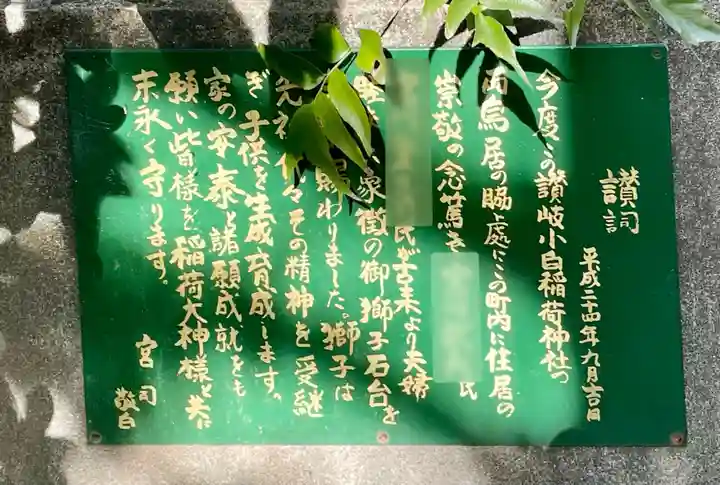 讃詞
平成二十四年九月吉日
今度この讃岐小白稲荷神社の
両鳥居の脇上處にこの町内に住居の
崇敬の念篤き 氏
氏が古来より夫婦
象徴の御獅子石台を
賜わりました。獅子は
元祖代々その精神を受継
ぎ子供を生成育成します。
家の安泰と諸願成就をも
願い皆様を稲荷大神様と共に
末永く守ります。
宮司
敬白